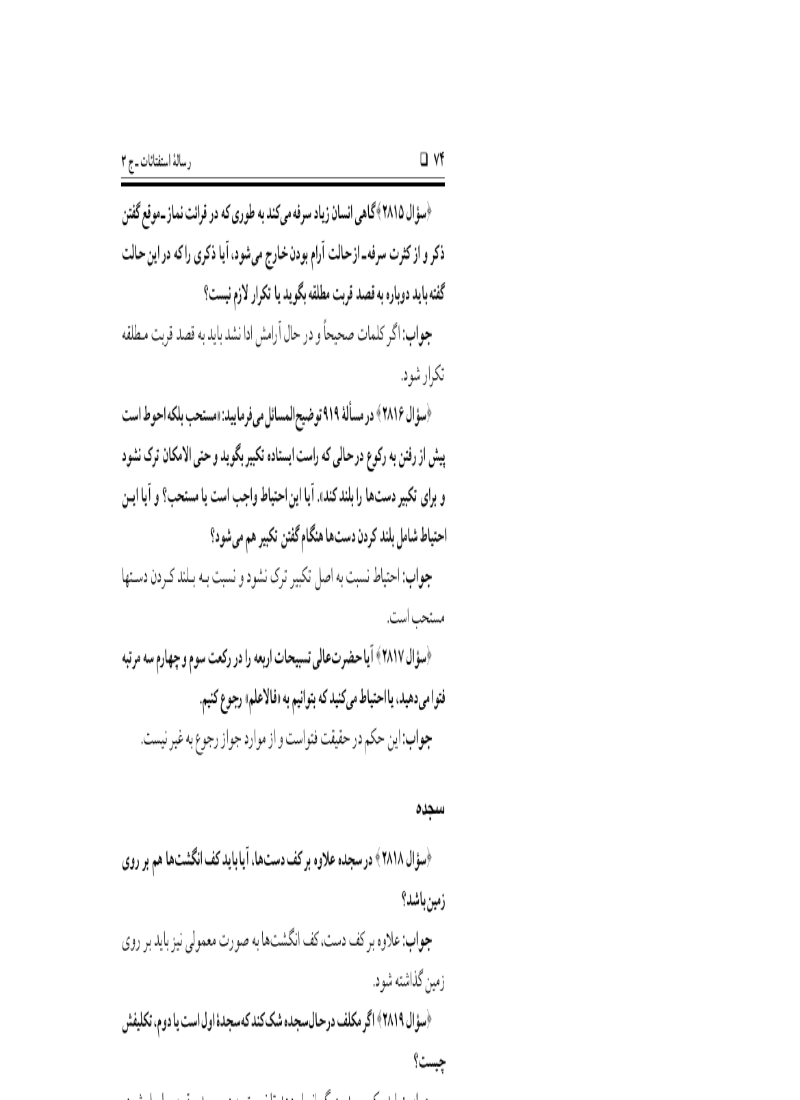 ۷۴ ❏ رسالهٔ استفتائات ـ ج ۳
﴿سؤال ۲۸۱۵﴾ گاهی انسان زیاد سرفه می‌کند به طوری که در قرائت نماز ـ موقع گفتن
ذکر و از کثرت سرفه ـ از حالت آرام بودن خارج می‌شود، آیا ذکری را که در این حالت
گفته باید دوباره به قصد قربت مطلقه بگوید یا تکرار لازم نیست؟
جواب: اگر کلمات صحیحاً و در حال آرامش ادا نشد باید به قصد قربت مطلقه
تکرار شود.
﴿سؤال ۲۸۱۶﴾ در مسألهٔ ۹۱۹ توضیح‌المسائل می‌فرمایید: «مستحب بلکه احوط است
پیش از رفتن به رکوع در حالی که راست ایستاده تکبیر بگوید و حتی الامکان ترک نشود
و برای تکبیر دست‌ها را بلند کند». آیا این احتیاط واجب است یا مستحب؟ و آیا این
احتیاط شامل بلند کردن دست‌ها هنگام گفتن تکبیر هم می‌شود؟
جواب: احتیاط نسبت به اصل تکبیر ترک نشود و نسبت به بلند کردن دستها
مستحب است.
﴿سؤال ۲۸۱۷﴾ آیا حضرت‌عالی تسبیحات اربعه را در رکعت سوم و چهارم سه مرتبه
فتوا می‌دهید، یا احتیاط می‌کنید که بتوانیم به «فالاعلم» رجوع کنیم.
جواب: این حکم در حقیقت فتواست و از موارد جواز رجوع به غیر نیست.
سجده
﴿سؤال ۲۸۱۸﴾ در سجده علاوه بر کف دست‌ها، آیا باید کف انگشت‌ها هم بر روی
زمین باشد؟
جواب: علاوه بر کف دست، کف انگشت‌ها به صورت معمولی نیز باید بر روی
زمین گذاشته شود.
﴿سؤال ۲۸۱۹﴾ اگر مکلف در حال سجده شک کند که سجدهٔ اول است یا دوم، تکلیفش
چیست؟